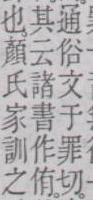 通俗文于罪切。
其云諸書作侑。
也。顏氏家訓之